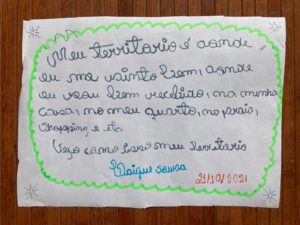 Meu territorio é aonde
eu me sinto bem, aonde
eu sou bem recebido, na minha
casa, no meu quarto, no praia,
Shopping, e etc.
Vejo como isso meu territorio
Kaique Sousa
21/10/2021